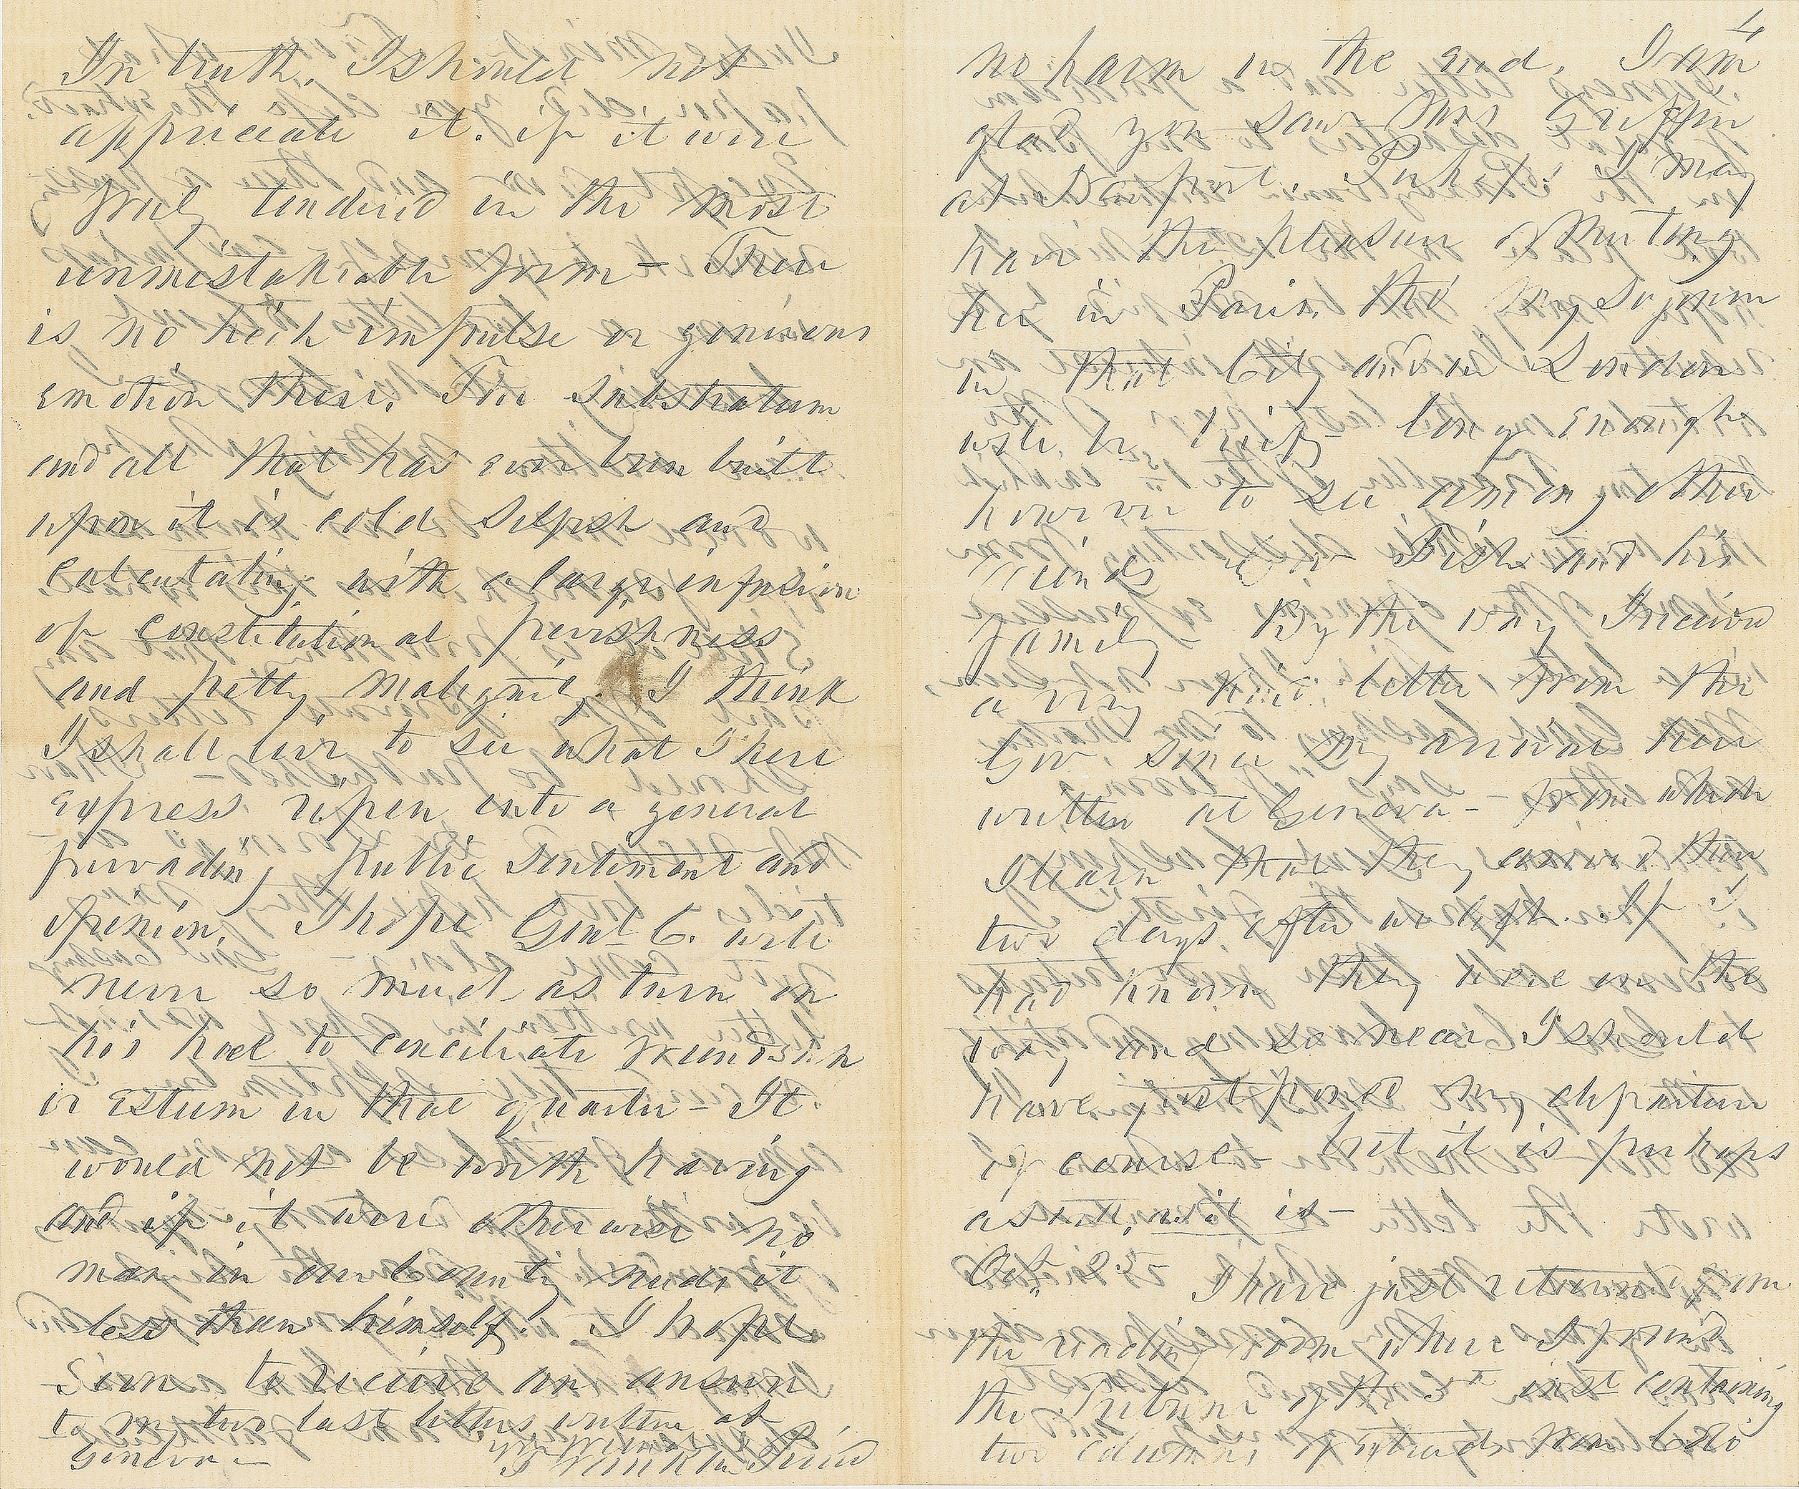 In truth, I should not
appreciate it. if it were
truly tendered in the most
unmistakable form – There
is no rich impulse or generous
emotion there. The substratum
and all that has ever been built
upon it is cold selfish and
calculating, with a large infusion
of constitutional peevishness
and petty malignity. I think
I shall live to see what I here
express, ripen into a general
pervading public sentiment and
opinion. I hope Genl C. will
never so much as turn on
his heel to conciliate friendship
or esteem in that quarter – It
would not be worth having
and if it were otherwise no
man in our County needs it
less than himself. I hope
soon to receive an answer
to my two last letters written at
Geneva –
4
no harm in the end. I am
glad you saw Mrs Griffin
at Perhaps I may
have the pleasure of meeting
her in Paris, tho' my sojourn
in that City and in London
will be brief – long enough
however to see among other
friends Fish and his
family – By the way I received
a very kind letter from the
Gov. since my arrival here
written at Geneva – from which
I learn that they arrived there
two days after we left. If I
had known they were on the
way and so near I should
have postponed my departure
of course – but it is perhaps
as well, as it is –
Oct. 25 – I have just returned from
the reading room where I found
the Tribune of the 3d inst containing
two columns of extracts from